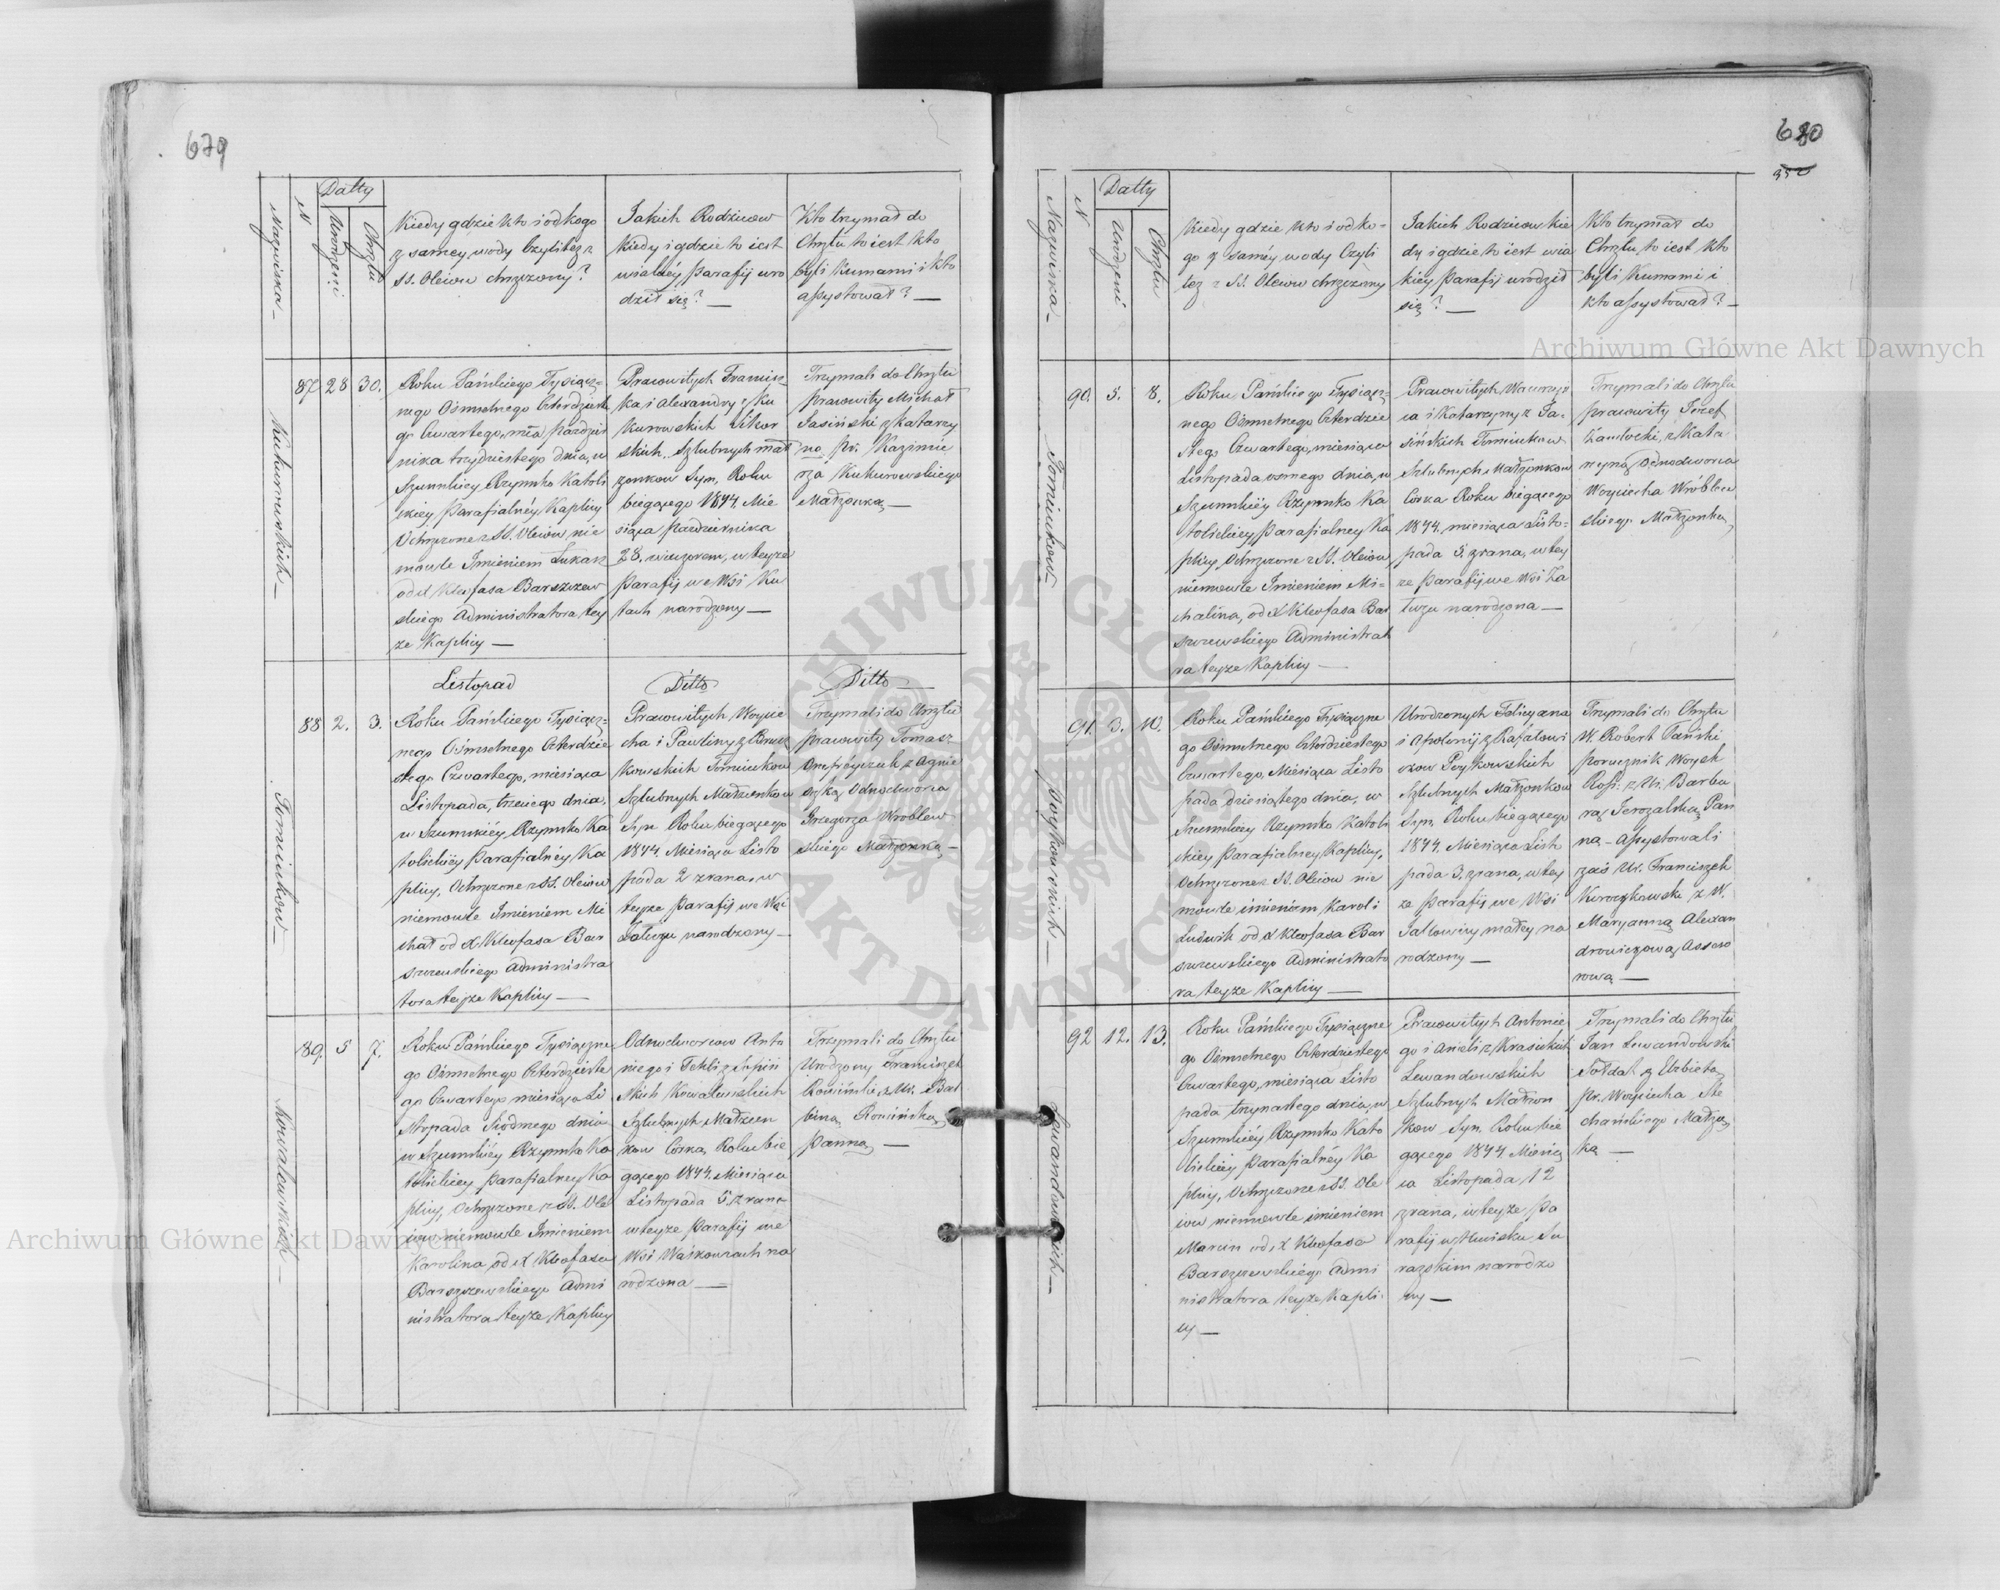 679
Nazwiska
N
Datty
Urodzeni
Chrztu
Kiedy gdzie kto i od kogo
z samey wody Czyli tez z
SS. Oleiów chrzczony?
Jakich Rodziców
Kiedy i gdzie to iest
w iakiéy Parafij uro
dził się? —
Kto trzymał do
Chrztu to iest kto
byli Kumami i kto
assystował? —
Kukurowskich —
87
28
30.
Roku Pańskiego Tysiącz=
nego Ośmsetnego Czterdzieste
go Czwartego, mca Paździer
nika trzydziestego dnia, w
Szumskiey Rzymsko Katoli
ckiey Parafialnéy Kaplicy
Ochrzczone z SS. Oleiów nie
mowle Imieniem Łukasz
od X Kleofasa Barszczew
skiego Administratora tey
że Kaplicy —
Pracowitych Francisz
ka i Alexandry z Ku
kurowskich Sikor
skich. Szlubnych mał
żonkow Syn, Roku
biegącego 1844. Mie
siąca Października
28. wieczorem, w teyze
Parafij we Wsi Ku
tach narodzony —
Trzymali do Chrztu
Pracowity Michał
Jasiński z Katarzy
ną Pr. Kazimie
rza Kukurowskiego
Małżonką —
Listopad
Ditto
Ditto
Tomiukow —
88
2.
3.
Roku Pańskiego Tysiącz=
nego Ośmsetnego Czterdzie
stego Czwartego, miesiąca
Listopada, trzeciego dnia,
w Szumskiéy Rzymsko Ka
tolickiéy Parafialnéy Ka
plicy, Ochrzczone z SS. Oleiów
niemowle Imieniem Mi
chał od X Kleofasa Bar
szczewskiego Administra
tora teyze Kaplicy —
Pracowitych Woycie
cha i Pawliny z
kowskich Tomiukow
Szlubnych Małżonkow
Syn Roku biegącego
1844. Miesiąca Listo
pada 2 zrana, w
teyze Parafij we Wsi
Załuzu narodzony —
Trzymali do Chrztu
Pracowity Tomasz
Onufreyczuk z Agnie
szką Odnodworca
Grzegorza Wroblew
skiego Małzonką —
Kowalewskich —
89.
5
7.
Roku Pańskiego Tysiączne
go Ośmsetnego Czterdzieste
go Czwartego miesiąca Li
stopada Siódmego dnia
w Szumskiéy Rzymsko Ka
tolickiey Parafialney Ka
plicy, Ochrzczone z SS. Ole
iów niemowle Imieniem
Karolina od X Kleofasa
Barszczewskiego Admi
nistratora teyze Kaplicy
Odnodworcow Anto
niego i Tekli z
skich Kowalewskich
Szlubnych Małżon
kow Corka, Roku bie
gącego 1844. Miesiąca
Listopada 5 zrana
w teyze Parafij we
Wsi Waskowcach na
rodzona —
Trzymali do Chrztu
Urodzony Franciszek
Romiński z Ur. Bal
biną Romińską
Panną —
680
350
Nazwiska —
N
Datty
Urodzeni
Chrztu
Kiedy gdzie kto i od ko=
go z saméy wody Czyli
tez z SS. Oleiow chrzczony
Jakich Rodzicow kie
dy i gdzie to iest w ia
kiéy Parafij urodził
się? —
Kto trzymał do
Chrztu to iest kto
byli Kumami i
kto assystował? —
Tomiukow —
90.
5.
8.
Roku Pańskiego Tysiącz=
nego Ośmsetnego Czterdzie
stego Czwartego, miesiąca
Listopada osmego dnia, w
Szumskiéy Rzymsko Ka
tolickiéy Parafialney Ka
plicy, Ochrzczone z SS. Oleiow
niemowle Imieniem Mi=
chalina, od X Kleofasa Bar
szczewskiego Administrat
ra teyze Kaplicy —
Pracowitych Wawrzyń
ca i Katarzyny z Ja=
sińskich Tomiukow
Szlubnych Małżonkow
Corka Roku biegącego
1844. miesiąca Listo=
pada 5. zrana, w tey
ze Parafij we Wsi Za
łuzu narodzona —
Trzymali do Chrztu
Pracowity Jozef
Zawłocki, z Kata
rzyną Odnodworca
Woyciecha Wróblew
skiego Małżonką
Poykowskich —
91.
3.
10.
Roku Pańskiego Tysiączne
go Ośmsetnego Czterdziestego
Czwartego, Miesiąca Listo
pada dziesiątego dnia, w
Szumskiéy Rzymsko Katoli
ckiey Parafialney Kaplicy,
Ochrzczone z SS. Oleiow nie
mowle imieniem Karol i
Ludwik od X Kleofasa Bar
szczewskiego Administrato
ra teyze Kaplicy —
Urodzonych Felicyana
i Apolonij z Rafałowi
czow Poykowskich
Szlubnych Małżonkow
Syn, Roku biegącego
1844. Miesiąca List
pada 3. zrana, w tey
ze Parafij we Wsi
Iałowicy małey na
rodzony —
Trzymali do Chrztu
W. Robert Tański
Porucznik Woysk
Ross. z Ur. Barba
rą Jerozalską Pan
ną — Assystowali
zaś Ur. Franciszek
Kurczykowski z W.
Maryanną Alexan
drowiczową Assesso
rową —
Lewandowskich —
92
12.
13.
Roku Pańskiego Tysiączne
go Ośmsetnego Czterdziestego
Czwartego, miesiąca Listo
pada trzynastego dnia, w
Szumskiéy Rzymsko Kato
lickiéy Parafialnéy Ka
plicy, Ochrzczone z SS. Ole
iow niemowle imieniem
Marcin od X Kleofasa
Barszczewskiégo Admi
nistratora teyze Kapli
cy —
Pracowitych Antonie
go i Anieli z Krasickich
Lewandowskich
Szlubnych Małżon
kow Syn. Roku bie
gącego 1844 Miesią
ca Listopada 12
zrana, w teyze Pa
rafij w Huisku Su
razskim narodzo
ny —
Trzymali do Chrztu
Jan Lewandowski
Sołdat z Elzbietą
Pr. Woyciecha Ste
chańskiego Małżon
ką —
Archiwum Główne Akt Dawnych
Archiwum Główne Akt Dawnych
ARCHIWUM GŁÓWNE AKT DAWNYCH